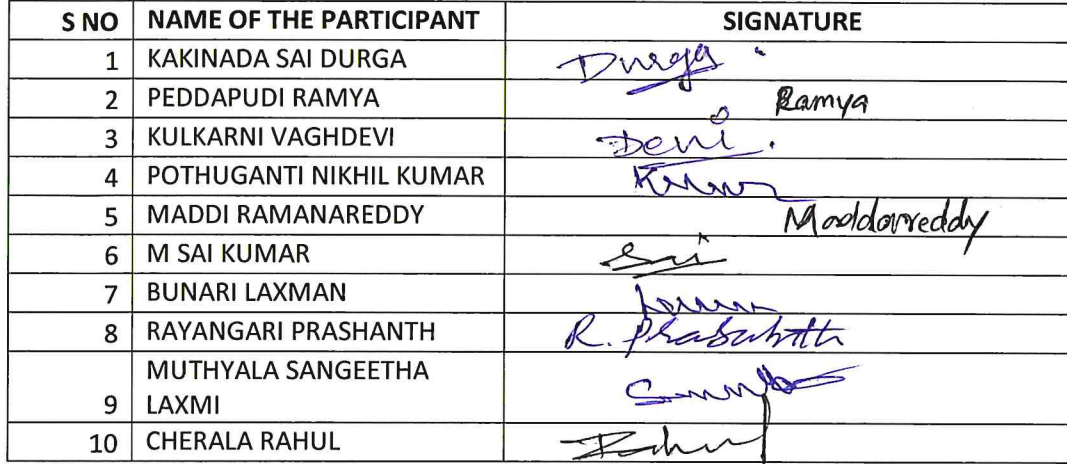 S NO NAME OF THE PARTICIPANT SIGNATURE
1 KAKINADA SAI DURGA Durga
2 PEDDAPUDI RAMYA Ramya
3 KULKARNI VAGHDEVI Devi.
4 POTHUGANTI NIKHIL KUMAR
5 MADDI RAMANAREDDY
6 M SAI KUMAR Sai
7 BUNARI LAXMAN
8 RAYANGARI PRASHANTH R.
MUTHYALA SANGEETHA
9 LAXMI
10 CHERALA RAHUL Rahul